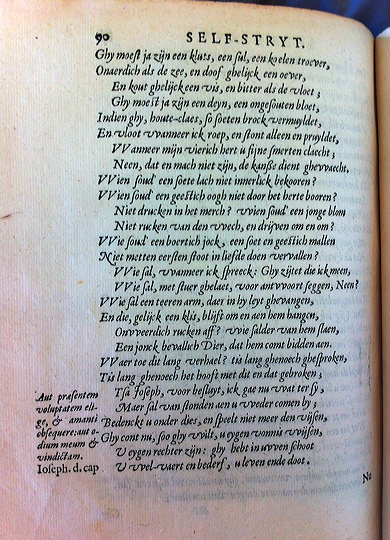 90 SELF-STRYT.
Ghy moest ja zijn een kluts, een sul, een koelen troever,
Onaerdich als de zee, en doof ghelijck een oever,
En kout ghelijck een vis, en bitter als de roet;
Ghy moest ja zijn een deyn, een ongesouten bloet,
Indien ghy, houte-claes, so soeten brock vermuyldet,
En vloot vvanneer ick roep, en stont alleen en pruyldet,
VVanneer mijn vierich hert u fijne smerten claecht;
Neen, dat en mach niet zijn, de kanse dient ghevvaecht,
VVien soud' een soete lach niet innerlick bekooren?
VVien soud' een geestich oogh niet door het herte booren?
Niet drucken in het merch? vvien soud een jonge blom
Niet rucken van den vvech, en drijven om en om?
VVie soud' een boertich jock, een soet en geestich mallen
Niet metten eersten stoot in liefde doen vervallen?
VVie sal, vvanneer ick spreeck: Ghy zijtet die ick meen,
VVie sal, met stuer ghelaet, voor antvvoort seggen, Neen?
VVie sal een teeren arm, daer in hy leyt ghevangen,
En die, gelijck een klis, blijft om en aen hem hangen,
Onvveerdich rucken aff? vvie salder van hem slaen,
Een jonck bevallich Dier, dat hem comt bidden aen.
VVaer toe dit lang verhael? tis lang ghenoech ghesproken,
Tis lang ghenoech het hooft met dit en dat gebroken;
Tsa Ioseph, voor besluyt, ick gae nu vvat ter sy,
Maer sal van stonden aen u vveder comen by;
Bedenckt u onder dies, en speelt niet meer den vvijsen,
Ghy cont nu, soo ghy vvilt, u eygen vonnis vvijsen,
U eygen rechter zijn: ghy hebt in uvven schoot
U vvel-vaert en bederf, u leven ende doot.
Aut præsentem
voluptatem eli-
ge, & amanti
obsequere: aut o-
dium meum &
vindictam.
Ioseph. d. cap
Na